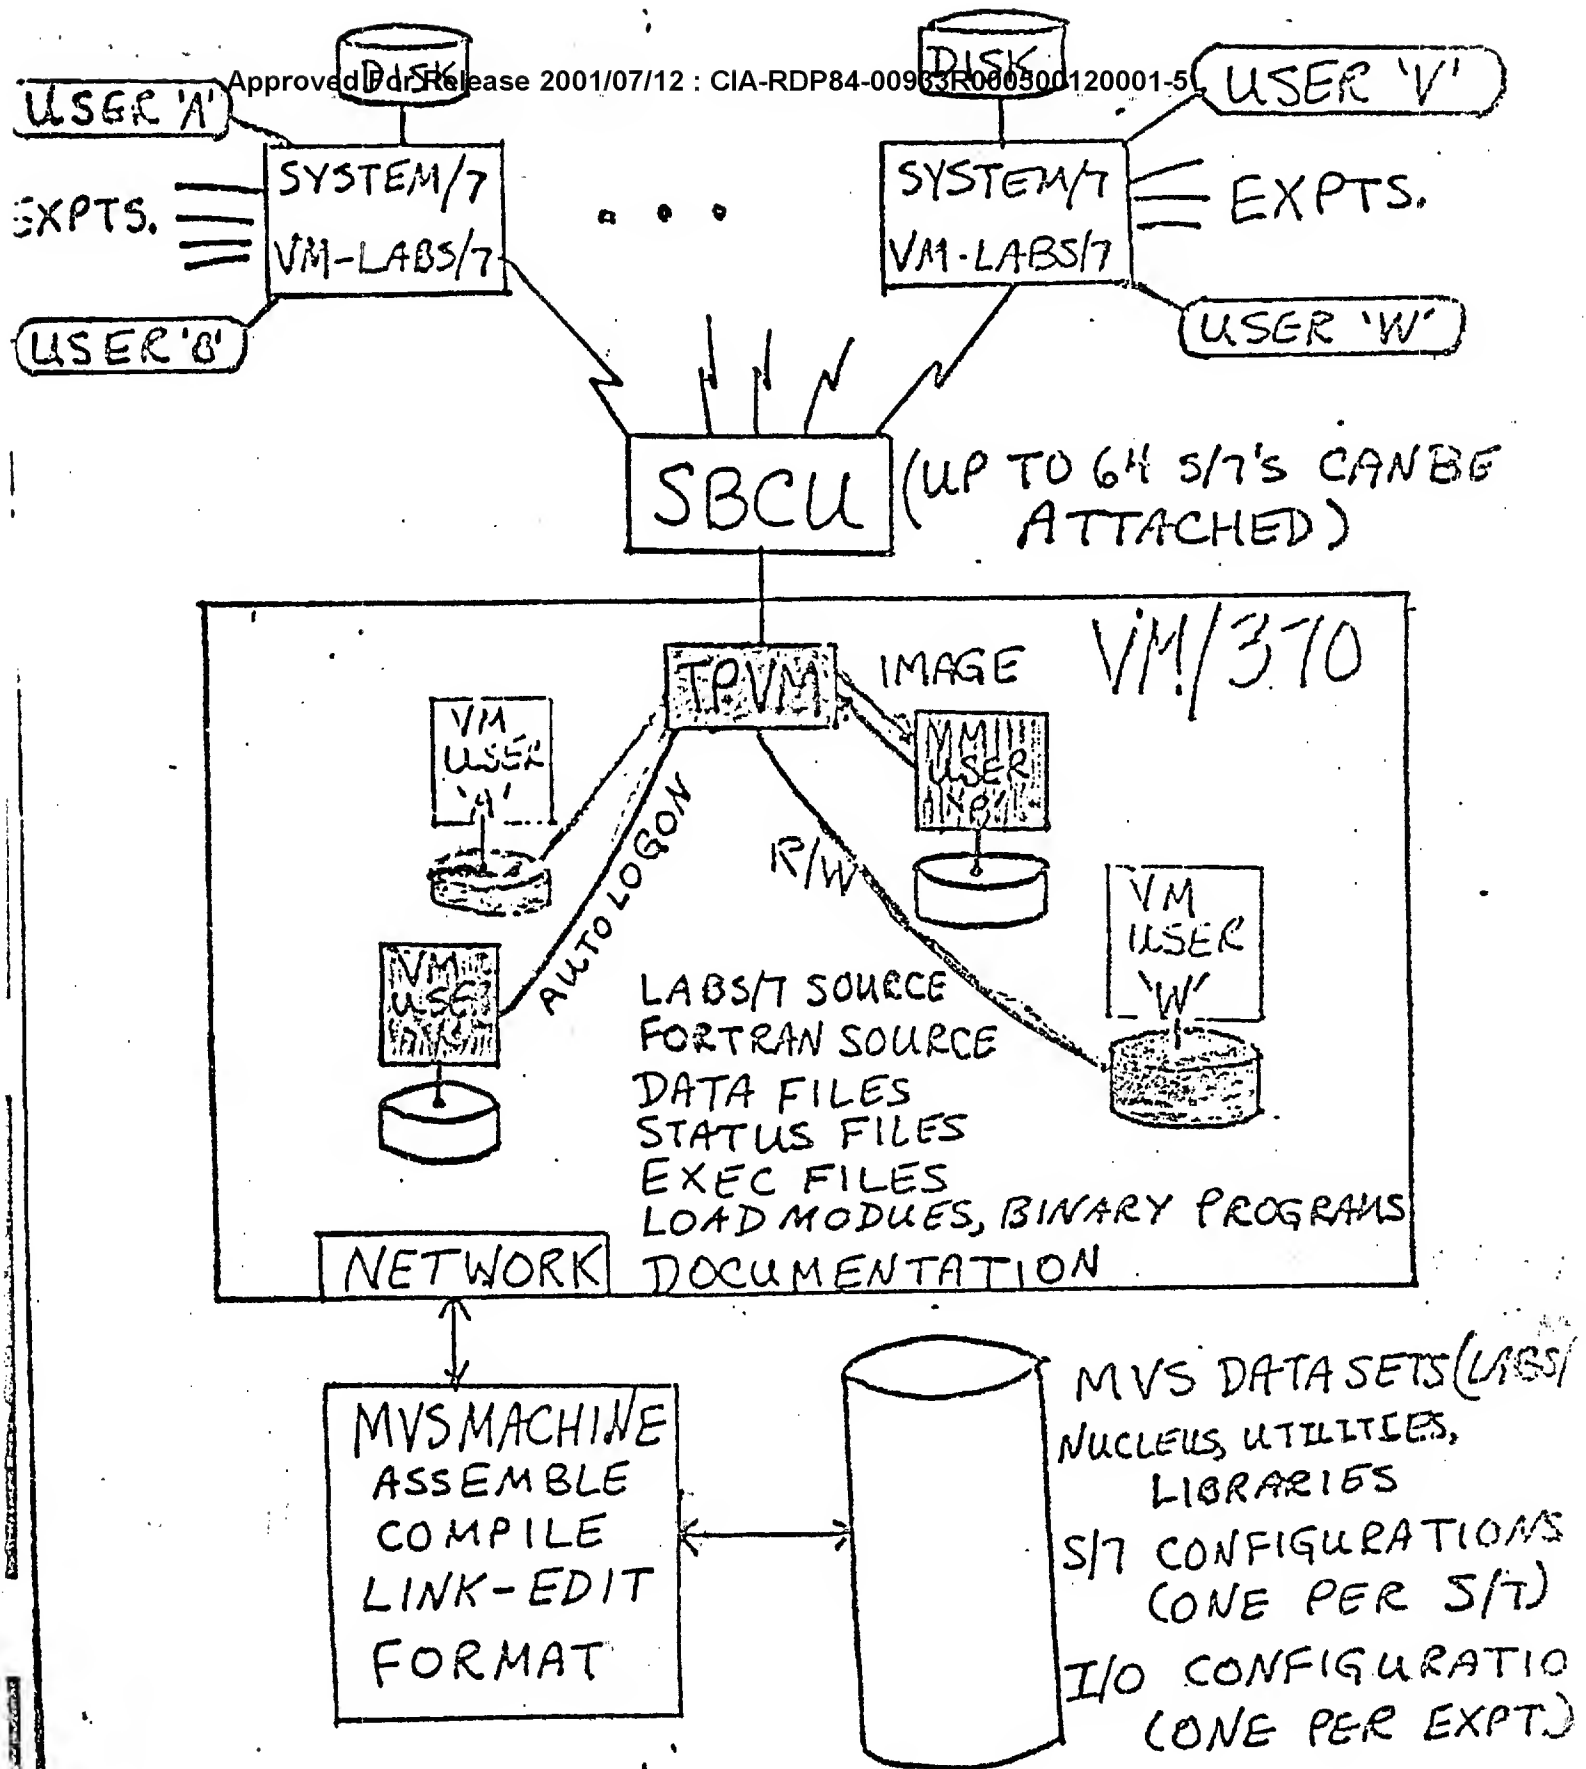 DISK
DISK
Approved For Release 2001/07/12 : CIA-RDP84-00933R000500120001-5
USER 'A'
USER 'V'
SYSTEM/7
VM-LABS/7
EXPTS.
• • •
SYSTEM/7
VM-LABS/7
EXPTS.
USER 'B'
USER 'W'
SBCU
(UP TO 64 S/7'S CAN BE
ATTACHED)
VM/370
TPVM
IMAGE
VM
USER
'A'
VM
USER
AUTOLOGON
R/W
VM
USER
'W'
VM
USER
LABS/7 SOURCE
FORTRAN SOURCE
DATA FILES
STATUS FILES
EXEC FILES
LOAD MODUES, BINARY PROGRAMS
DOCUMENTATION
NETWORK
MVS MACHINE
ASSEMBLE
COMPILE
LINK-EDIT
FORMAT
MVS DATA SETS (LABS/
NUCLEUS, UTILITIES,
LIBRARIES
S/7 CONFIGURATIONS
(ONE PER S/7)
I/O CONFIGURATIO
(ONE PER EXPT.)